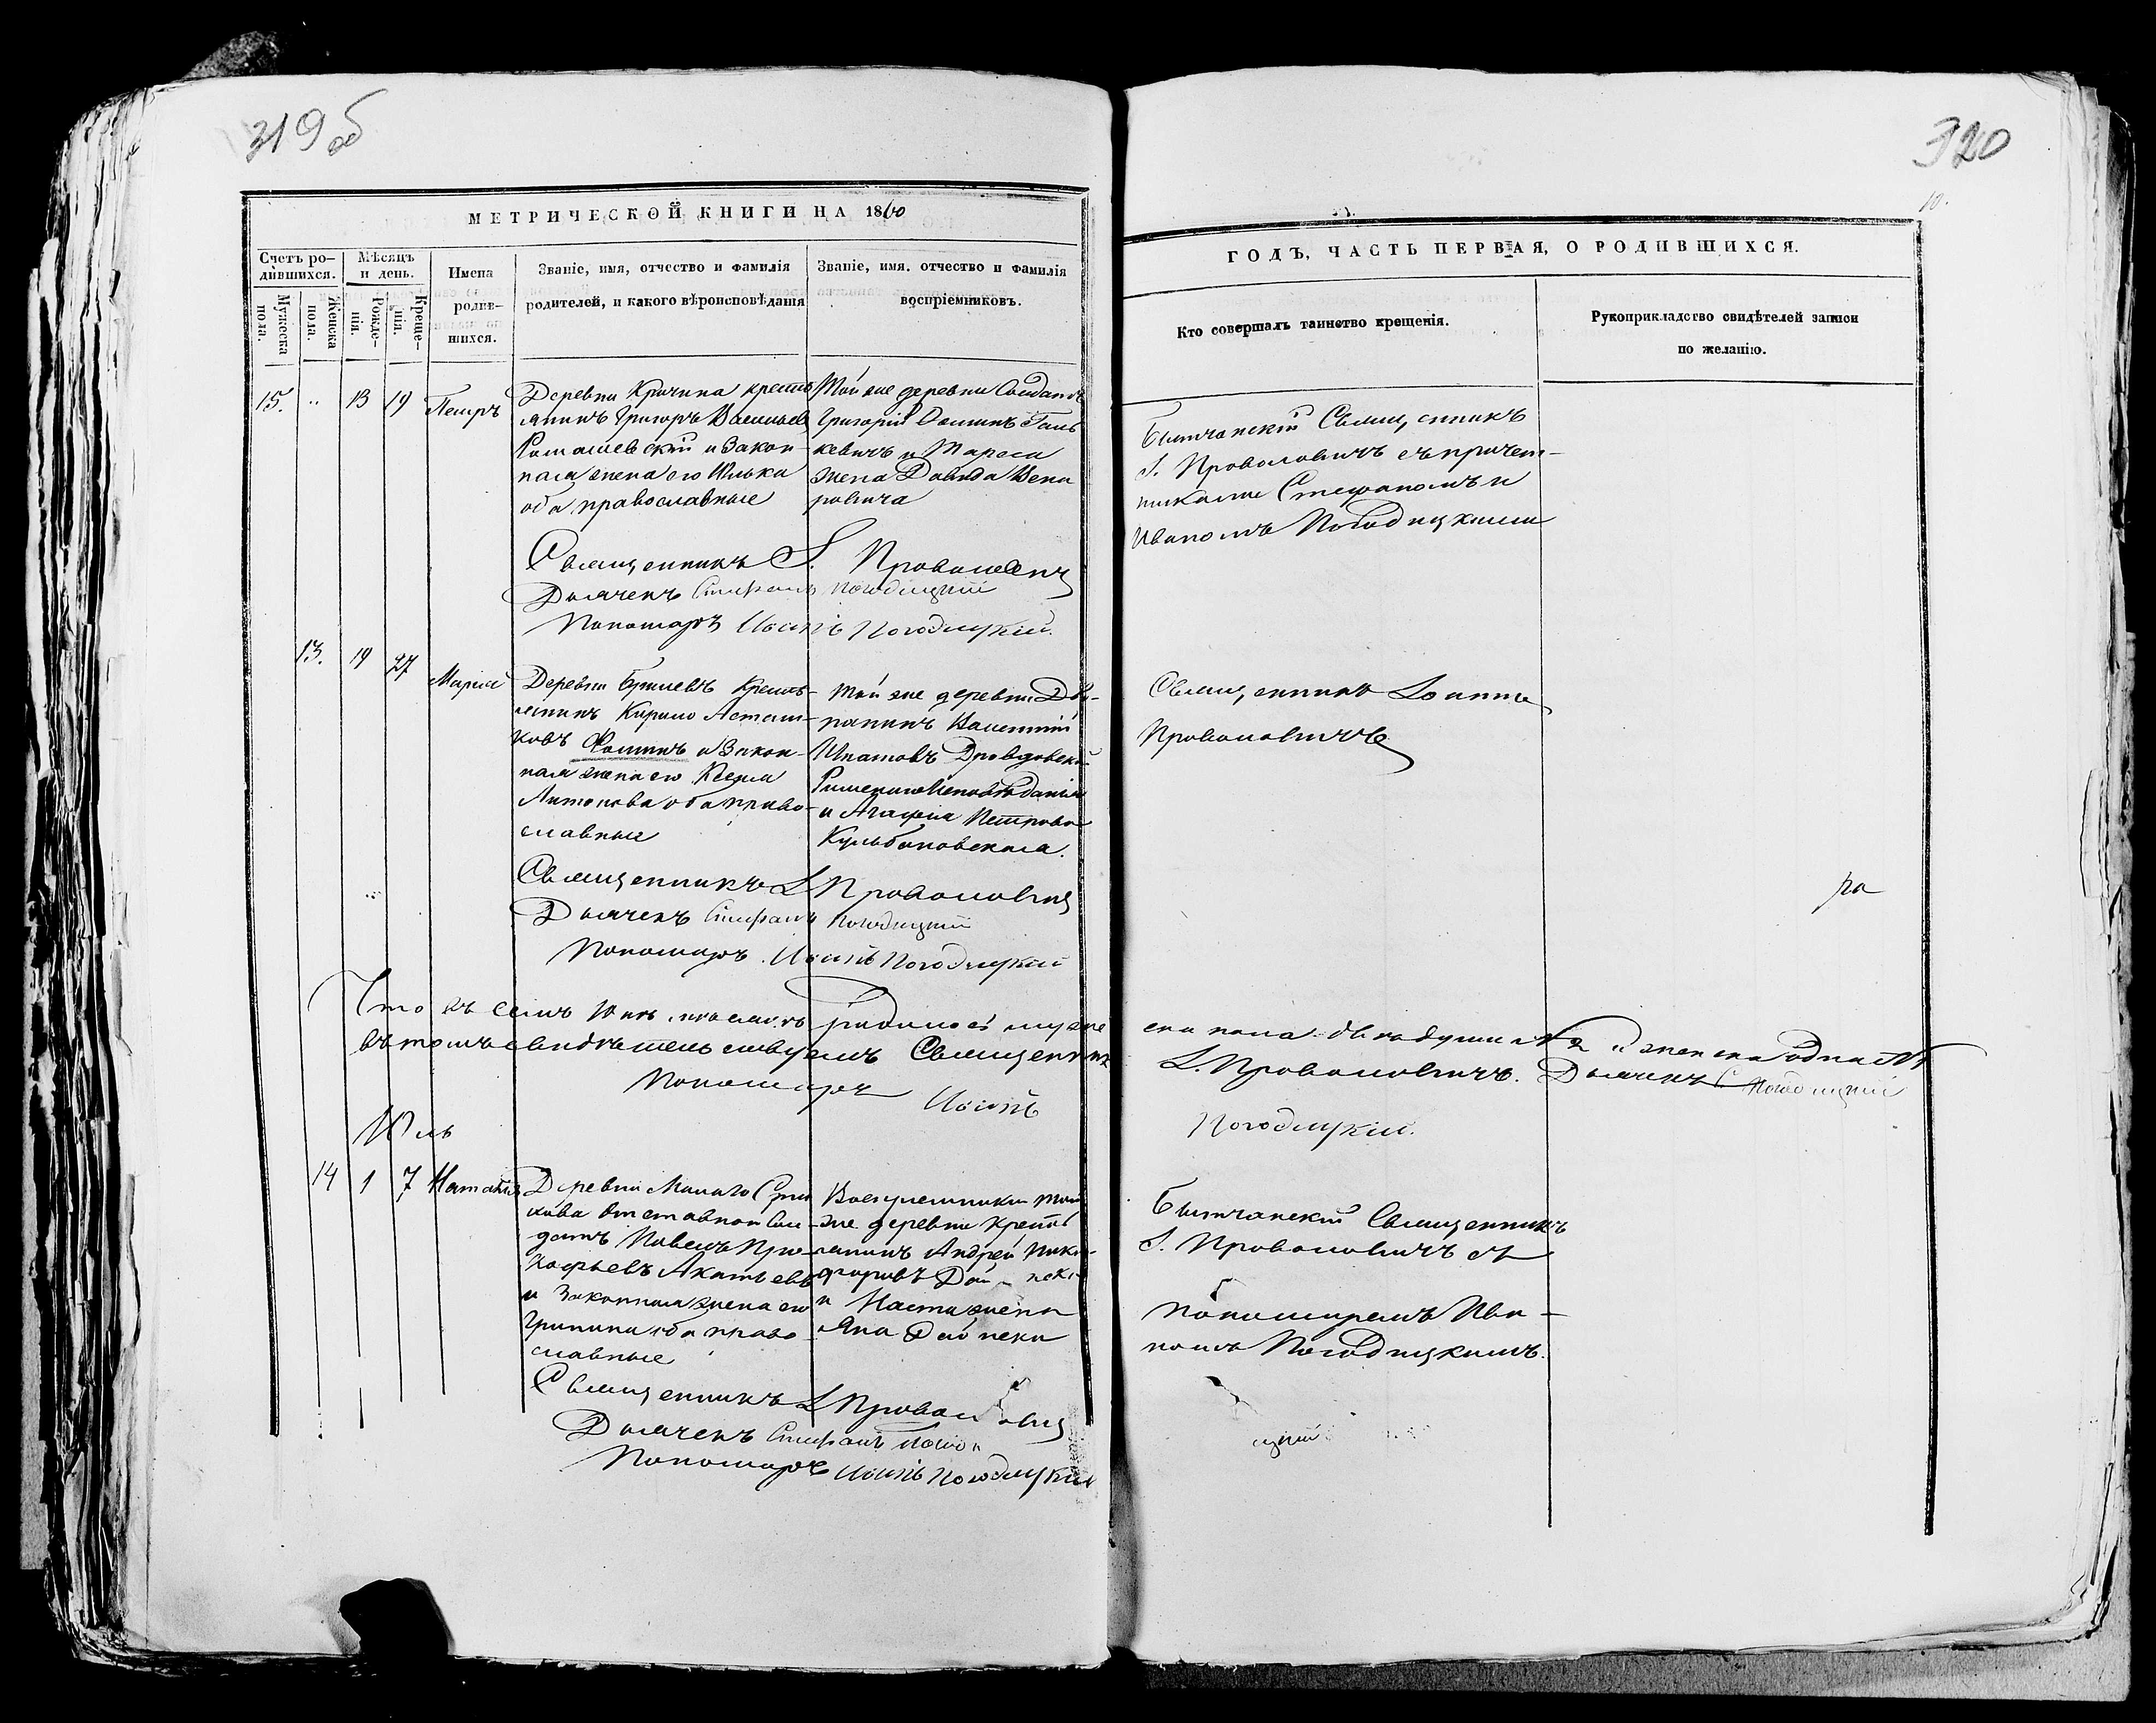 319 об
320
10.
МЕТРИЧЕСКОЙ КНИГИ НА 1860
ГОДЪ, ЧАСТЬ ПЕРВАЯ, О РОДИВШИХСЯ.
Счетъ ро-
дившихся.
Мужеска
пола.
Женска
пола.
Мѣсяцъ
и день.
Рожде-
нія.
Креще-
нія.
Имена
родив-
шихся.
Званіе, имя, отчество и фамилія
родителей, и какого вѣроисповѣданія
Званіе, имя, отчество и фамилія
воспріемниковъ.
Кто совершалъ таинство крещенія.
Рукоприкладство свидѣтелей записи
по желанію.
15. 13 19 Петръ
Деревни Кричина кресть
янинъ Григоръ Васильев
Ромашевскій и Закон-
ная жена его Юлька
оба православные
Той же деревни Солдатъ
Григорій Фоминъ Гань
кевичъ и Тареса
жена Давида Вена
ровича
Бытчанскій Священникъ
І. Проволовичъ съ причет-
никами Стефаномъ и
Иваномъ Погодицкими
Священникъ І. Проволович
Дьячекъ Стефанъ Погодицкій
Пономарь Иванъ Погодицкій.
13. 19 27 Марія
Деревни Бутлевъ Кресть-
янинъ Кирило Асташ-
ковъ Фоминъ и Закон-
ная жена его Ксенія
Антонова оба право-
славные
Той же деревни Дво-
рянинъ Валентій
Игнатовъ Дроздовскій
Римскаго Исповѣданія
и Агафія Петрова
Кульбановская.
Священникъ Іоаннъ
Проволовичъ
Священникъ І. Проволович
Дьячекъ Стефанъ Погодицкій
Пономарь Иванъ Погодицкій
ра
Что въ семъ Юнѣ мѣсяцѣ родилось муже
ска пола двѣ души №2 и женска одна №1
въ томъ свидѣтельствуемъ Священникъ
І. Проволовичъ. Дьячекъ С Погодицкій
Пономарь Иванъ
Погодицкій.
Юль
14 1 7 Наталія
Деревни Малаго Стах
кова Отставной Сол-
датъ Павелъ Про-
кофьевъ Акатьевъ
и Законная жена его
Грипина оба право-
славные
Воспріемники той
же деревни Кресть
янинъ Андрей Ники-
форовъ
и Наста жена
Яна Дойнеки
Бытчанскій Священникъ
І. Проволовичъ съ
пономаремъ Ива-
номъ Погодицкимъ.
Священникъ І. Проволович
Дьячекъ Стефанъ
цкій
Пономарь Иванъ Погодицкій